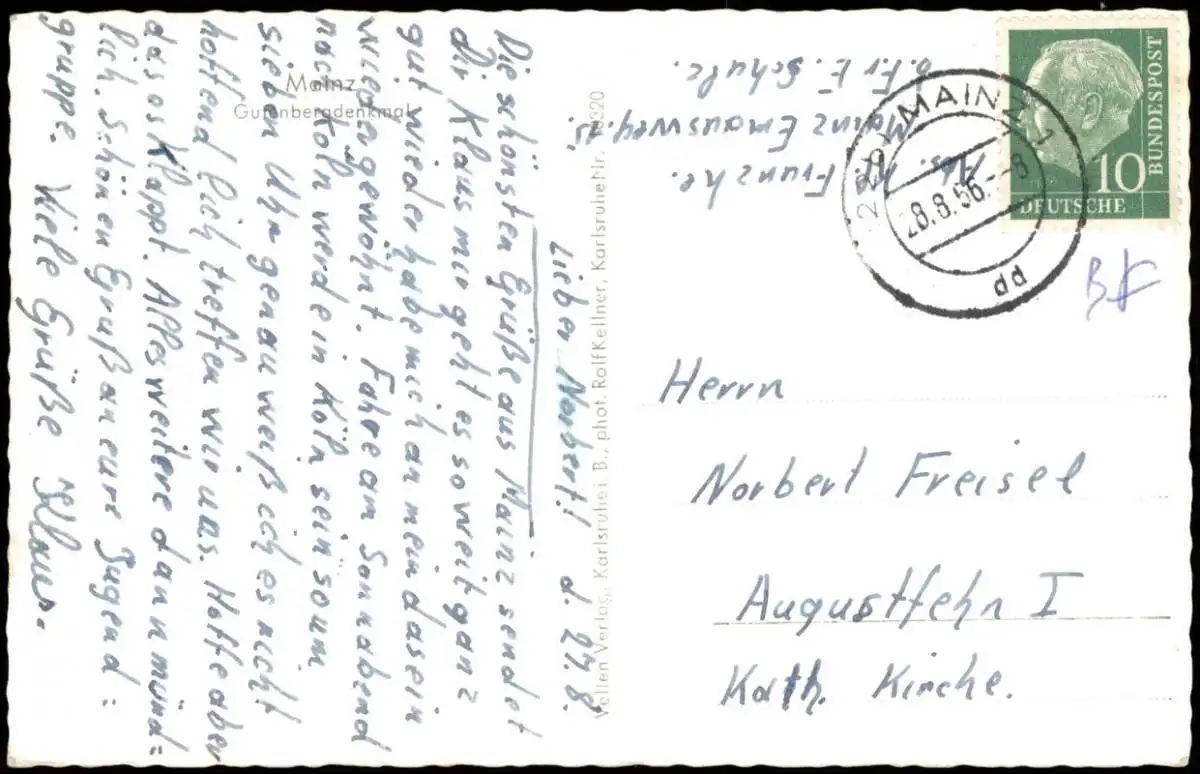 Mainz
Gutenbergdenkmal
Lieber Norbert! d. 27.8.
Die schönsten Grüße aus Mainz sendet
Dir Klaus mir geht es soweit ganz
gut wieder habe mich an mein dasein
wieder gewöhnt. Fahre am Sonnabend
nach Köln werde in Köln sein so um
sieben Uhr genau weiß ich es nicht
hoffend lich treffen wir uns. Hoffe aber
das es klappt. Alles weitere dann münd=
lich. Schönen Gruß an eure Jugend=
gruppe. Viele Grüße Klaus.
Verlag, Karlsruhe i B., phot. Rolf Kellner, Karlsruhe Nr.
Abs. Franzke.
Mainz Emausweg
b. Fr E. Schulz.
MAINZ 1
28.8.56.--8
pp
10
DEUTSCHE
BUNDESPOST
Herrn
Norbert Freisel
Augustfehn I
Kath. Kirche.